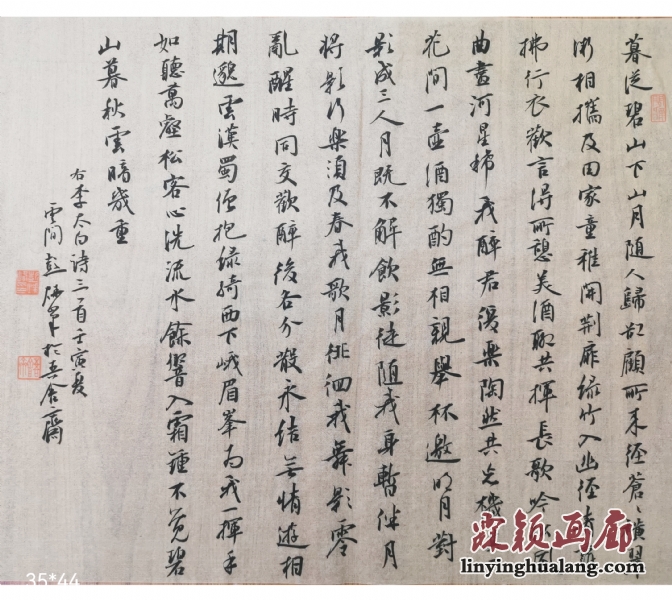 暮從碧山下山月隨人歸却顧所来徑蒼〻橫翠
微相攜及田家童稚開荊扉綠竹入幽徑青蘿
拂行衣歡言得所憩美酒聊共揮長歌吟
曲盡河星稀我醉君復樂陶然共忘機
花間一壺酒獨酌無相親舉杯邀明月對
影成三人月既不解飲影徒随我身暫伴月
將影行樂須及春我歌月徘徊我舞影零
亂醒時同交歡醉後各分散永結無情遊相
期邈雲漢蜀僧抱綠綺西下峨眉峯為我一揮手
如聽萬壑松客心洗流水餘響入霜鐘不覺碧
山暮秋雲暗幾重
右李太白詩三首壬寅夏
雲間彭 於 齋
35*44
霖颖画廊
linyinghualang.com